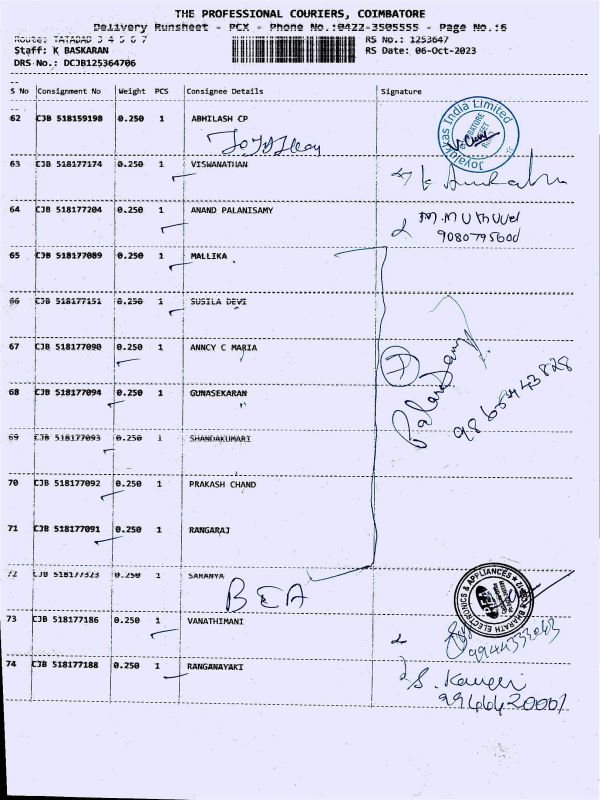 THE PROFESSIONAL COURIERS, COIMBATORE
Delivery Runsheet - PCX - Phone No.:0422-3505555 - Page No.:6
Route: TATABAD 3 4 5 6 7
RS No.: 1253647
Staff: K BASKARAN
RS Date: 06-Oct-2023
DRS No.: DCJB125364706
S No Consignment No Weight PCS Consignee Details Signature
62 CJB 518159198 0.250 1 ABHILASH CP
Joyalukkas India Limited
63 CJB 518177174 0.250 1 VISWANATHAN
64 CJB 518177204 0.250 1 ANAND PALANISAMY
M.Muthuvel
9080795600
65 CJB 518177089 0.250 1 MALLIKA
66 CJB 518177151 0.250 1 SUSILA DEVI
67 CJB 518177090 0.250 1 ANNCY C MARIA
7
68 CJB 518177094 0.250 1 GUNASEKARAN
69 CJB 518177093 0.250 1 SHANDAKUMARI
70 CJB 518177092 0.250 1 PRAKASH CHAND
71 CJB 518177091 0.250 1 RANGARAJ
72 CJB 518177323 0.250 1 SARANYA
BEA
BHARATH ELECTRONICS & APPLIANCES
73 CJB 518177186 0.250 1 VANATHIMANI
74 CJB 518177188 0.250 1 RANGANAYAKI